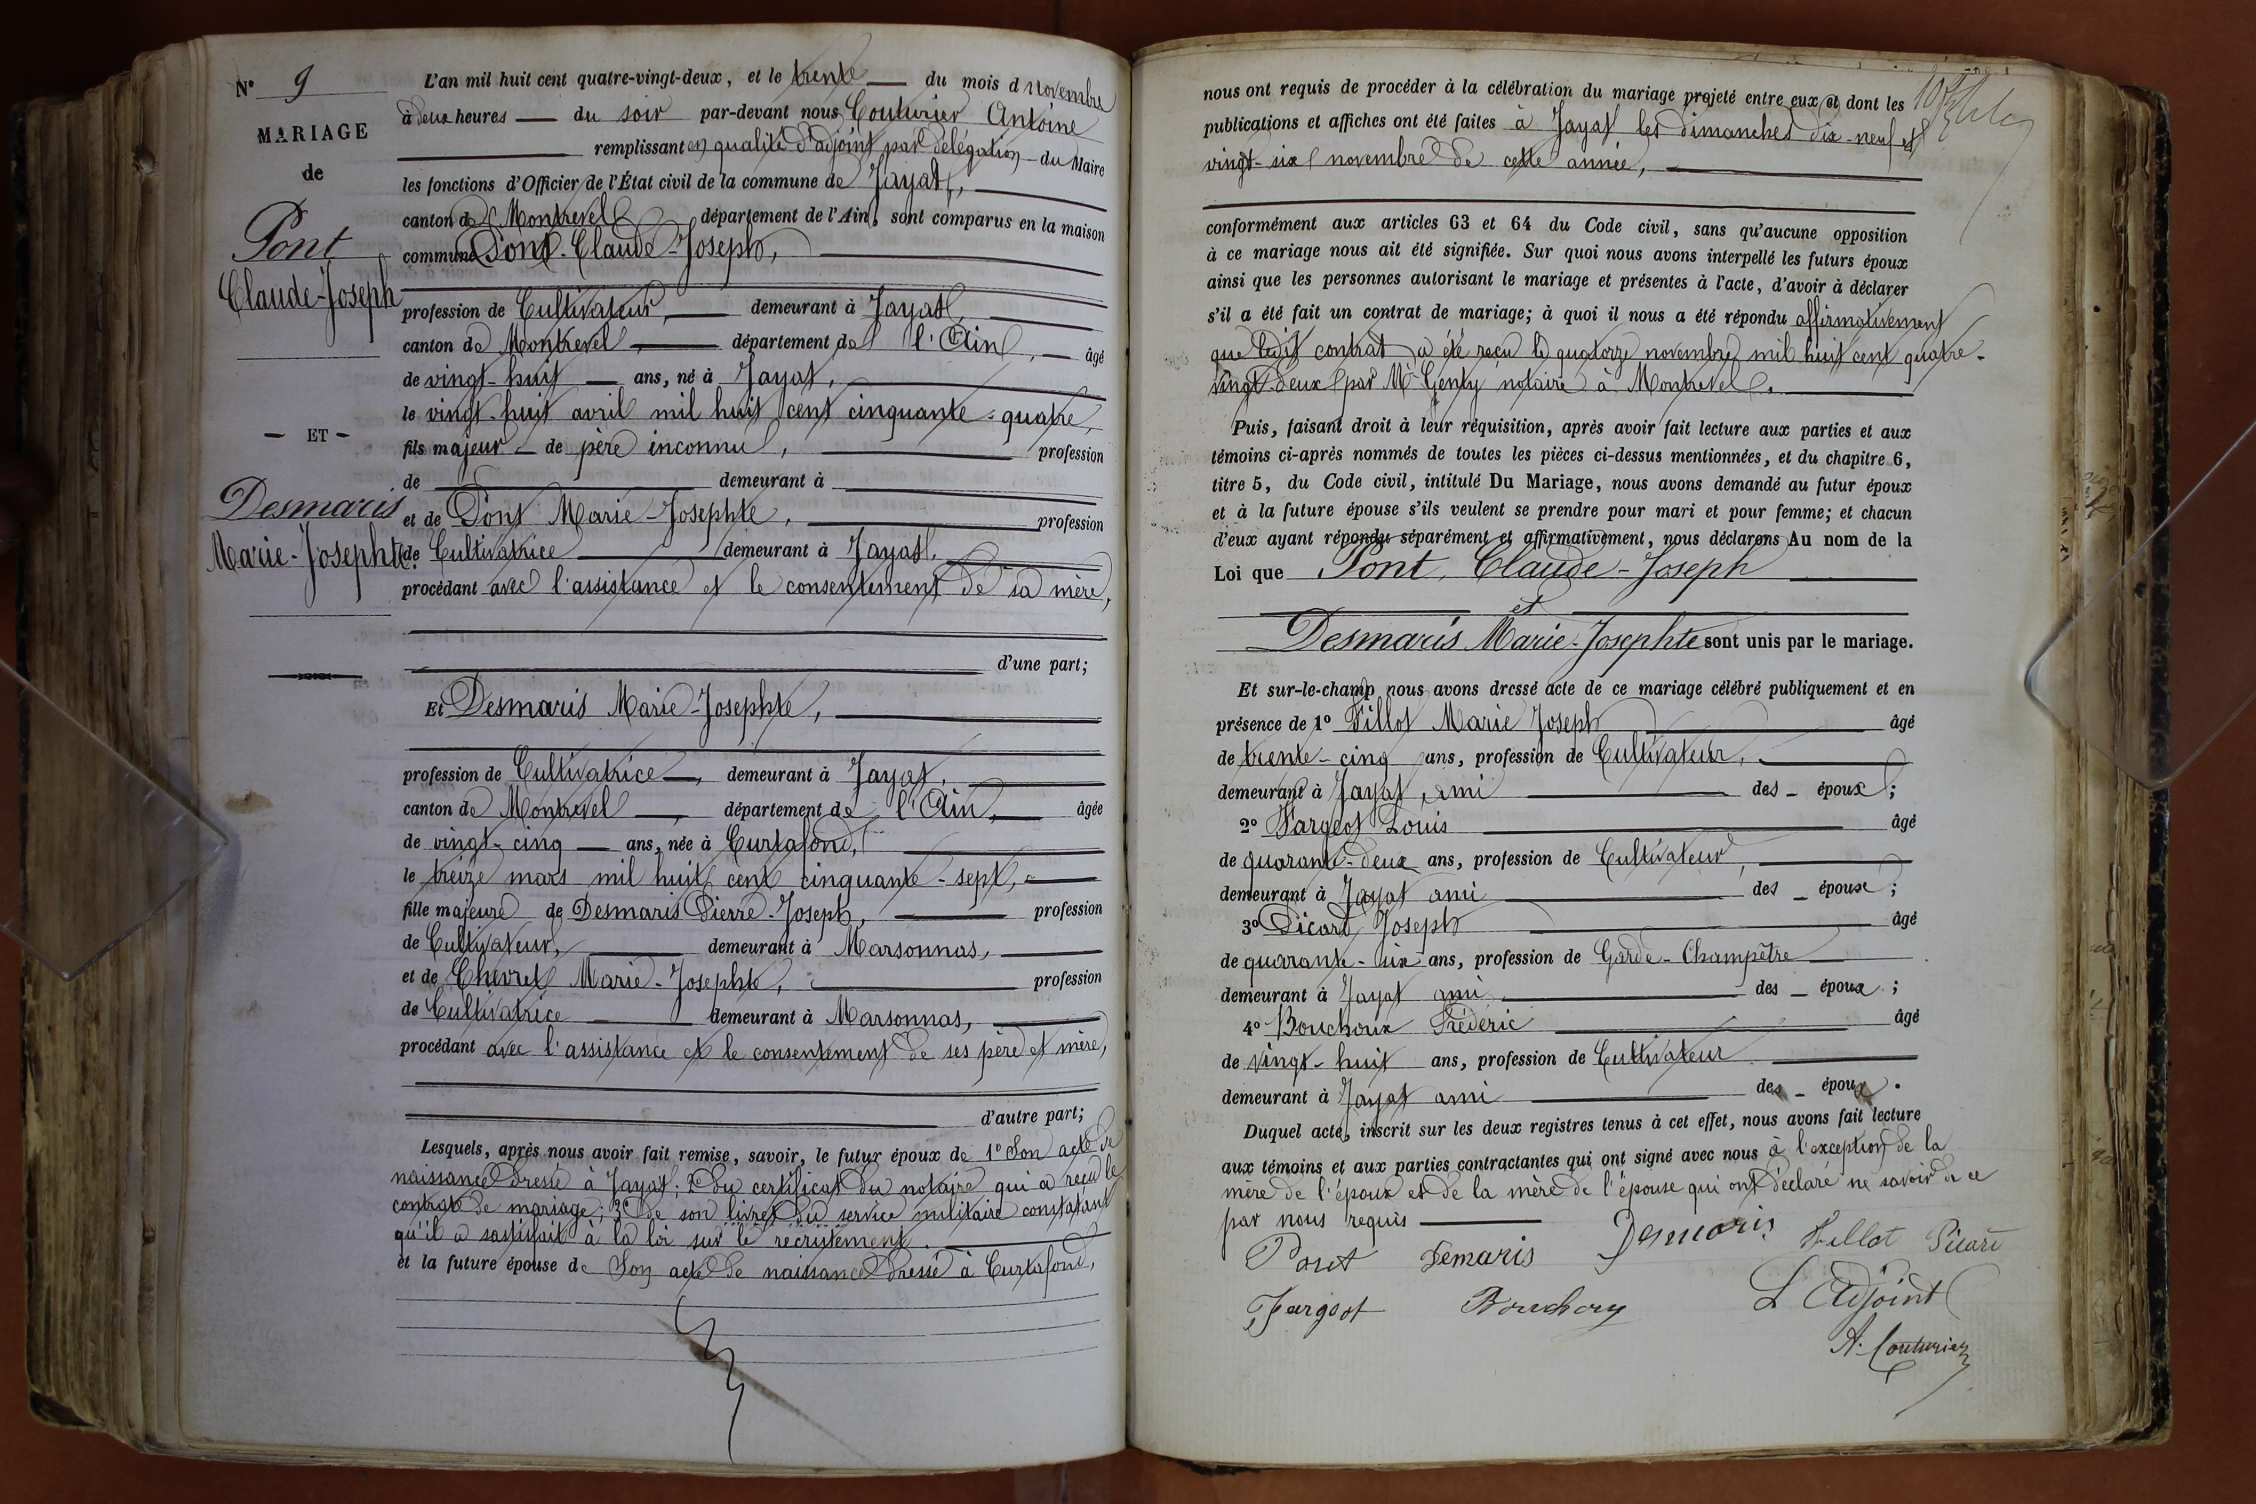 N° 9
MARIAGE
de
Pont
Claude-Joseph
- ET -
Desmaris
Marie-Josephte.
L'an mil huit cent quatre-vingt-deux, et le trente du mois d novembre
à deux heures du soir par-devant nous Couturier Antoine
remplissant en qualité d'adjoint par délégation du Maire
les fonctions d'Officier de l'État civil de la commune de Jayat,
canton de Montrevel département de l'Ain, sont comparus en la maison
commune Pont Claude-Joseph,
profession de Cultivateur, demeurant à Jayat,
canton de Montrevel, département de l'Ain, âgé
de vingt-huit ans, né à Jayat,
le vingt-huit avril mil huit cent cinquante-quatre,
fils majeur de père inconnu, profession
de demeurant à
et de Pont Marie-Josephte, profession
de Cultivatrice demeurant à Jayat,
procédant avec l'assistance et le consentement de sa mère,
d'une part;
Et Desmaris Marie-Josephte,
profession de Cultivatrice, demeurant à Jayat,
canton de Montrevel, département de l'Ain, âgée
de vingt-cinq ans, née à Curtafond,
le treize mars mil huit cent cinquante-sept,
fille majeure de Desmaris Pierre-Joseph, profession
de Cultivateur, demeurant à Marsonnas,
et de Chevrel Marie-Josephte, profession
de Cultivatrice demeurant à Marsonnas,
procédant avec l'assistance et le consentement de ses père et mère,
d'autre part;
Lesquels, après nous avoir fait remise, savoir, le futur époux de 1° Son acte de
naissance dressé à Jayat; 2° du certificat du notaire qui a reçu le
contrat de mariage; 3° de son livret du service militaire constatant
qu'il a sastisfait à la loi sur le recrutement.
et la future épouse de Son acte de naissance dressé à Curtafond,
nous ont requis de procéder à la célébration du mariage projeté entre eux et dont les
publications et affiches ont été faites à Jayat les dimanches dix-neuf et
vingt-six novembre de cette année,
conformément aux articles 63 et 64 du Code civil, sans qu'aucune opposition
à ce mariage nous ait été signifiée. Sur quoi nous avons interpellé les futurs époux
ainsi que les personnes autorisant le mariage et présentes à l'acte, d'avoir à déclarer
s'il a été fait un contrat de mariage; à quoi il nous a été répondu affirmativement
que ledit contrat a été reçu le quatorze novembre mil huit cent quatre-
vingt-deux par Me Genty notaire à Montrevel.
Puis, faisant droit à leur réquisition, après avoir fait lecture aux parties et aux
témoins ci-après nommés de toutes les pièces ci-dessus mentionnées, et du chapitre 6,
titre 5, du Code civil, intitulé Du Mariage, nous avons demandé au futur époux
et à la future épouse s'ils veulent se prendre pour mari et pour femme; et chacun
d'eux ayant répondu séparément et affirmativement, nous déclarons Au nom de la
Loi que Pont, Claude-Joseph
et
Desmaris Marie-Josephte sont unis par le mariage.
Et sur-le-champ nous avons dressé acte de ce mariage célébré publiquement et en
présence de 1° Fillot Marie Joseph âgé
de trente-cinq ans, profession de Cultivateur,
demeurant à Jayat, ami des époux;
2° Fargeot Louis âgé
de quarante-deux ans, profession de Cultivateur,
demeurant à Jayat ami des époux;
3° Picard Joseph âgé
de quarante-six ans, profession de Garde-Champêtre
demeurant à Jayat ami des époux;
4° Bouchoux Frédéric âgé
de vingt-huit ans, profession de Cultivateur
demeurant à Jayat ami des époux.
Duquel acte, inscrit sur les deux registres tenus à cet effet, nous avons fait lecture
aux témoins et aux parties contractantes qui ont signé avec nous à l'exception de la
mère de l'époux et de la mère de l'épouse qui ont déclaré ne savoir de ce
par nous requis
Pont Demaris Desmaris Fillot Picard
Fargeot Bouchoux L'Adjoint
A. Couturier